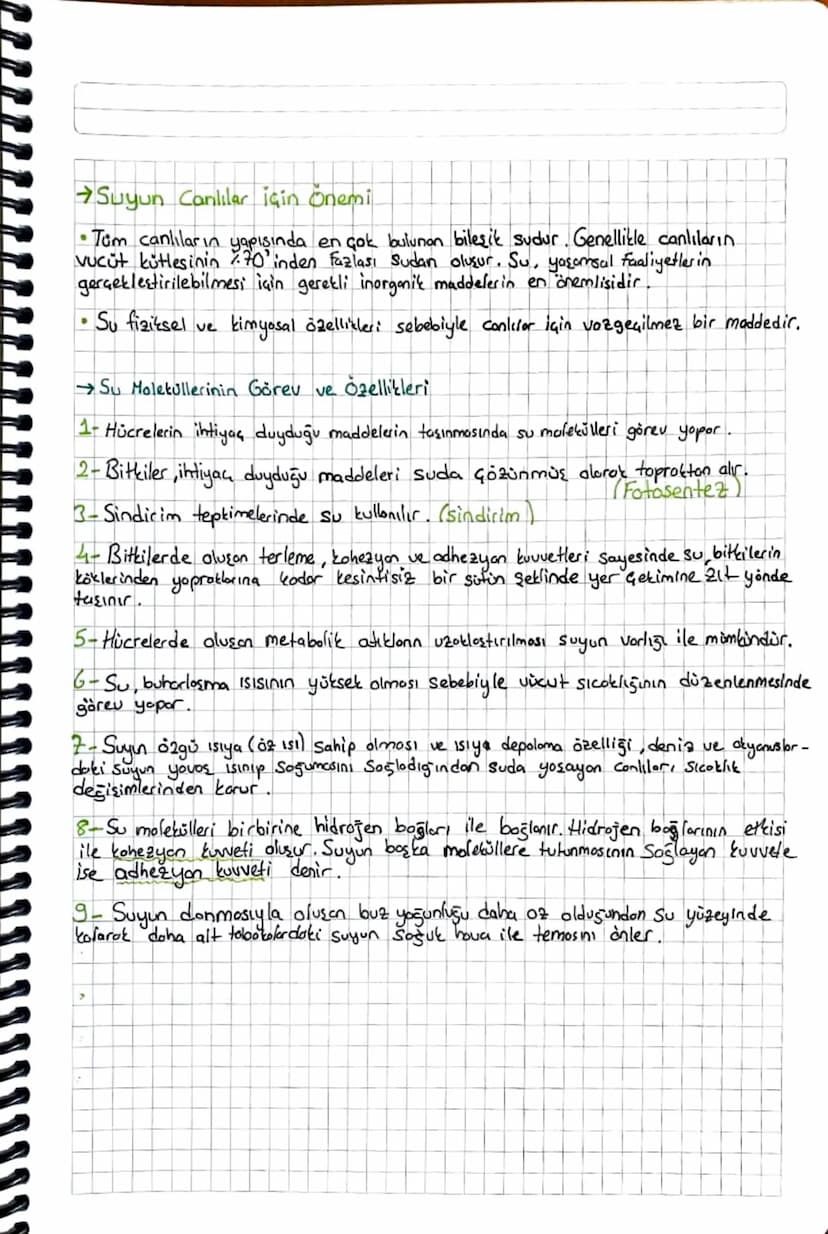 → Suyun Canlılar için Önemi
• Tüm canlıların yapısında en çok bulunan bileşik sudur. Genellikle canlıların
vücüt kütlesinin %70'inden fazlası sudan oluşur. Su, yaşamsal faaliyetlerin
gerçekleştirilebilmesi için gerekli inorganik maddelerin en önemlisidir.
• Su fiziksel ve kimyasal özellikleri sebebiyle canlılar için vazgeçilmez bir maddedir.
→ Su Moleküllerinin Görev ve Özellikleri
1- Hücrelerin ihtiyaç duyduğu maddelerin taşınmasında su molekülleri görev yapar.
2- Bitkiler, ihtiyaç duyduğu maddeleri suda çözünmüş olarak topraktan alır.
(Fotosentez)
3- Sindirim tepkimelerinde su kullanılır. (sindirim)
4- Bitkilerde oluşan terleme, kohezyon ve adhezyon kuvvetleri sayesinde su, bitkilerin
köklerinden yapraklarına kadar kesintisiz bir sütun şeklinde yer çekimine zıt yönde
taşınır.
5- Hücrelerde oluşan metabolik atıkların uzaklaştırılması suyun varlığı ile mümkündür.
6- Su, buharlaşma ısısının yüksek olması sebebiyle vücut sıcaklığının düzenlenmesinde
görev yapar.
7- Suyun özgü ısıya (öz ısı) sahip olması ve ısıya depolama özelliği, deniz ve okyanuslar-
daki suyun yavaş ısınıp soğumasını sağladığından suda yaşayan canlıları, sıcaklık
değişimlerinden korur.
8- Su molekülleri birbirine hidrojen bağları ile bağlanır. Hidrojen bağlarının etkisi
ile kohezyon kuvveti oluşur. Suyun başka moleküllere tutunmasının sağlayan kuvvete
ise adhezyon kuvveti denir.
9- Suyun donmasıyla oluşan buz yoğunluğu daha az olduğundan su yüzeyinde
kalarak daha alt tabakalardaki suyun soğuk hava ile temasını önler.